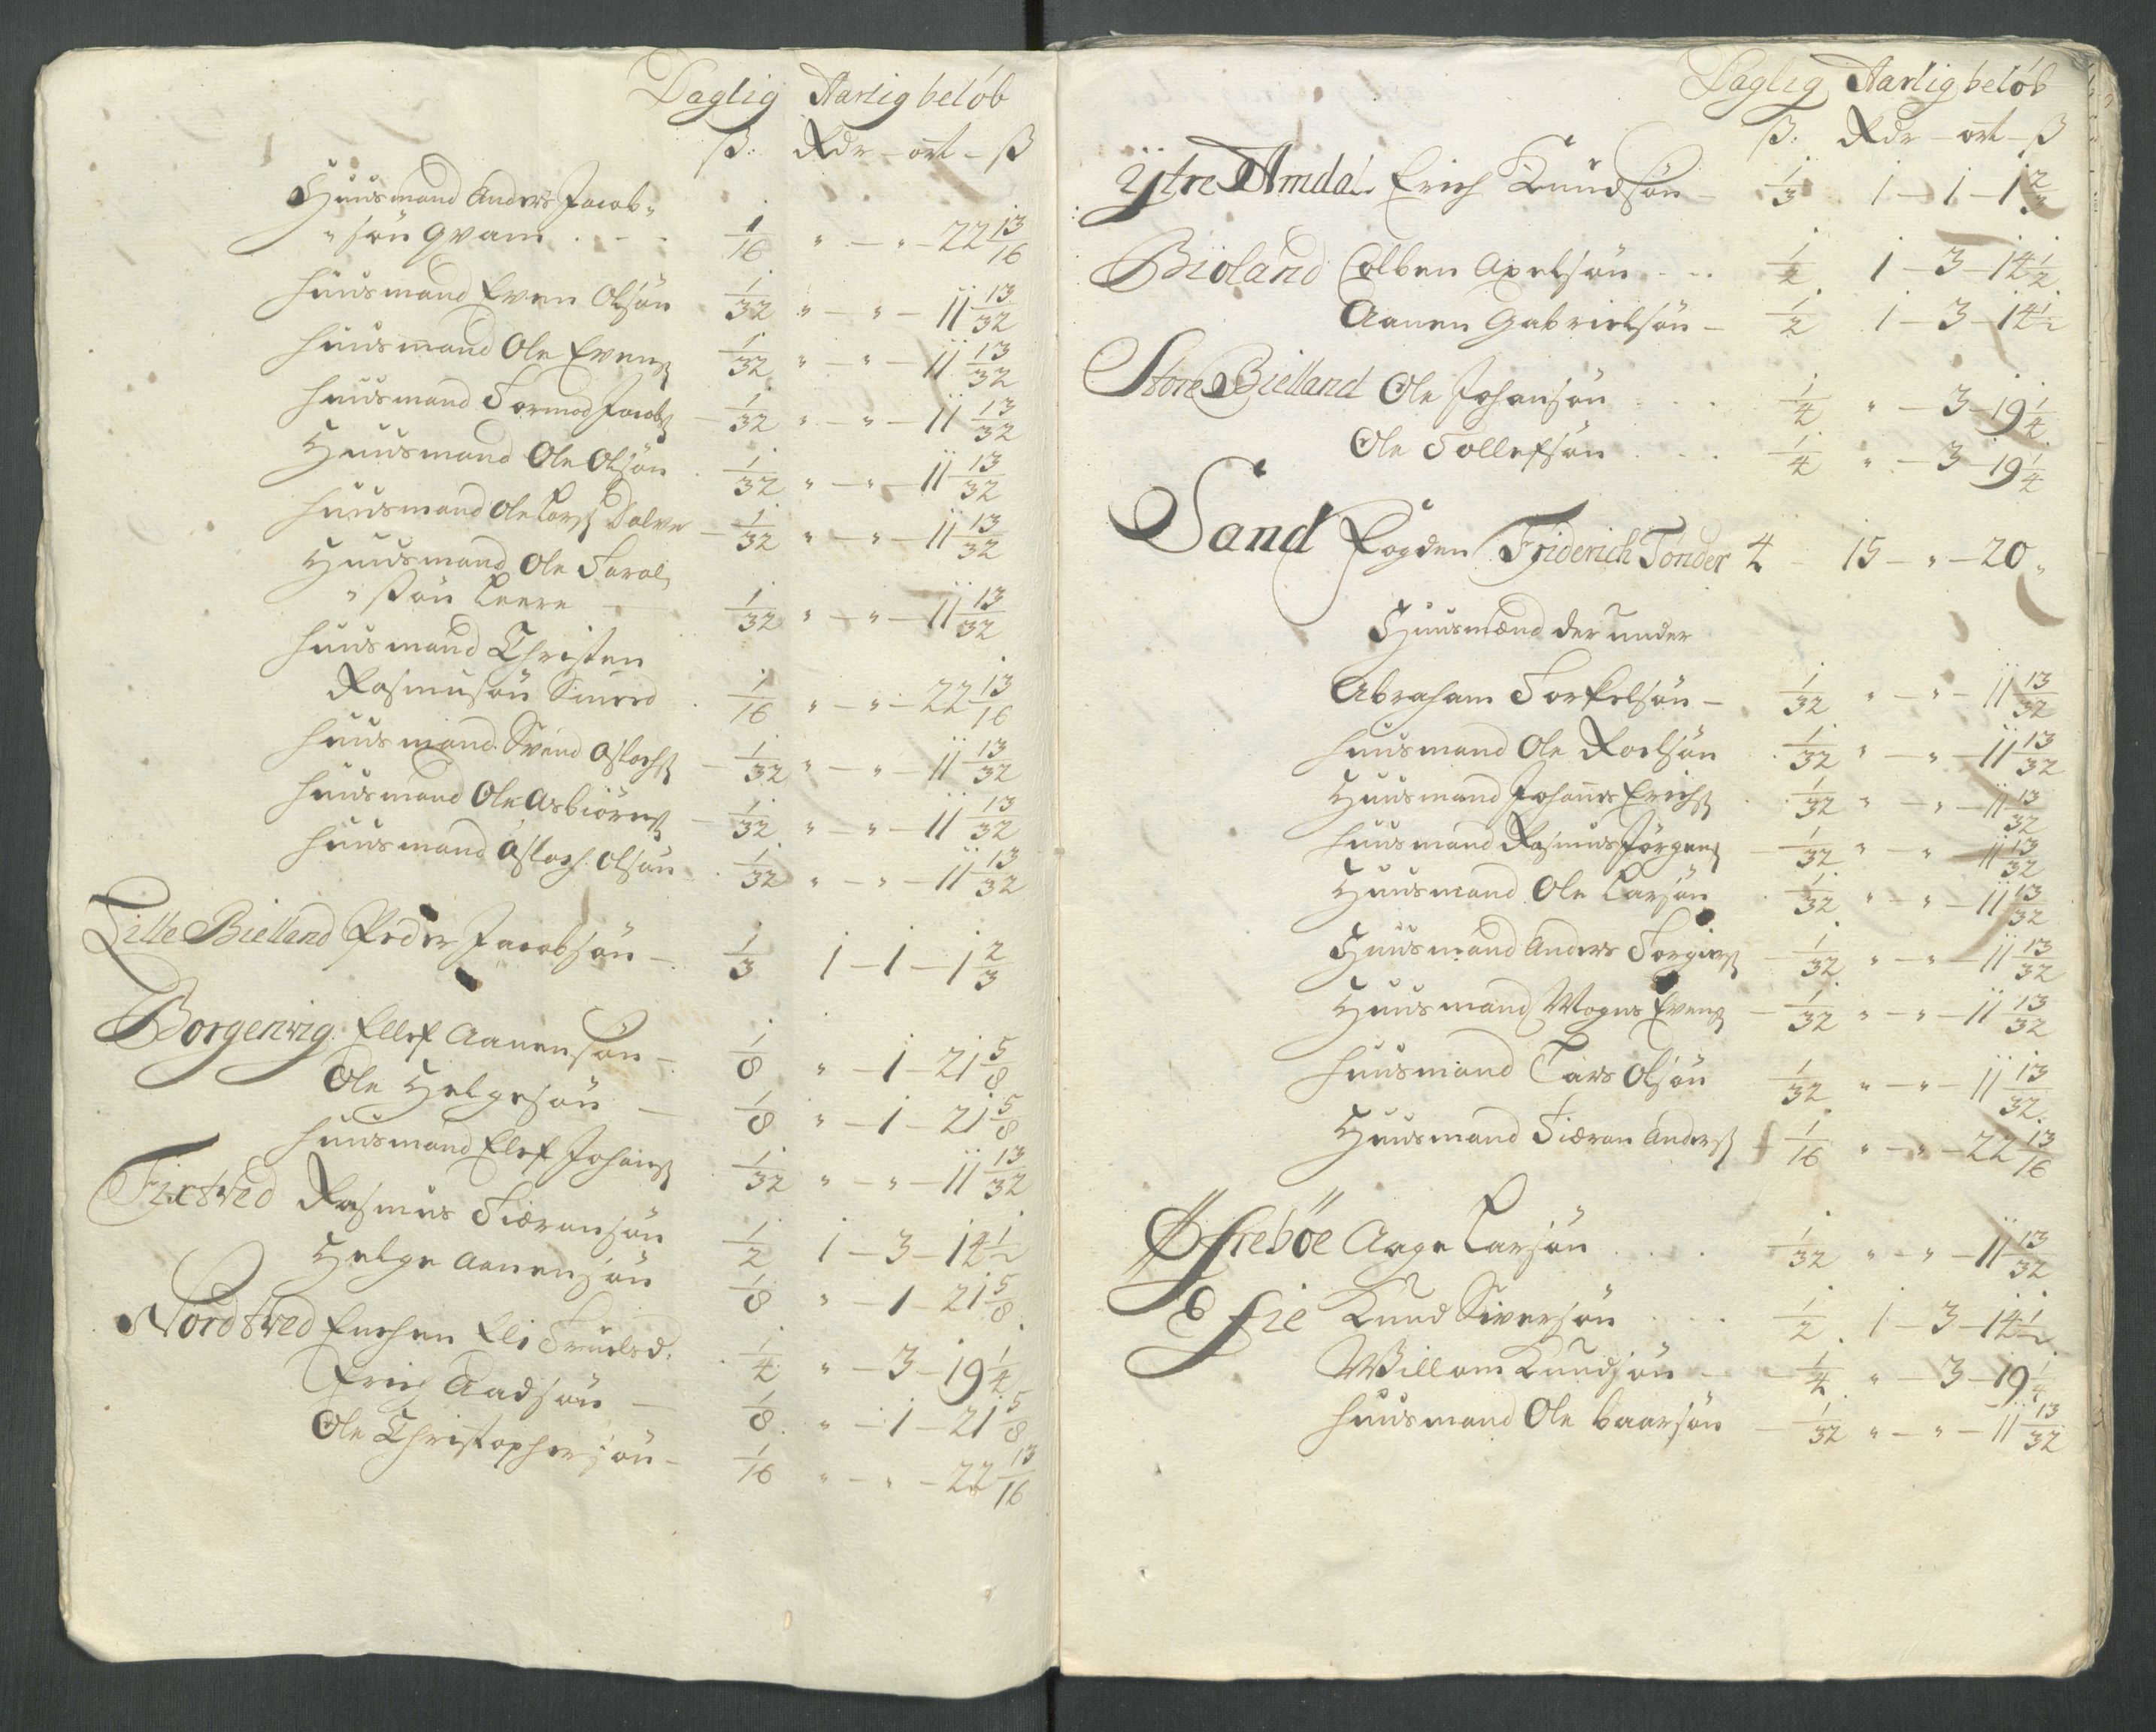 Daglig Aarlig beløb
ß: Rdr – ort – ß
Huusmand Anders Jacob„
„søn Qvam . - - 1/16 „ – „ – 22 13/16
Huusmand Even Olsøn 1/32 „ – „ – 11 13/32
Huusmand Ole Evenß 1/32 „ – „ – 11 13/32
Huusmand Tormod Jacobß – 1/32 „ – „ – 11 13/32
Huusmand Ole Olsøn . 1/32 „ – „ – 11 13/32
Huusmand Ole Larß Dalen – 1/32 „ – „ – 11 13/32
Huusmand Ole Taral„
„ßøn Leere – 1/32 „ – „ – 11 13/32
Huusmand Christen
Rasmusøn . 1/16 „ – „ – 22 13/16
Huusmand Svend Aslachß – 1/32 „ – „ – 11 13/32
Huusmand Ole Asbiörnß – 1/32 „ – „ – 11 13/32
Huusmand Aslach Olsøn . 1/32 „ – „ – 11 13/32
Lille Bielland Peder Jacobsøn – 1/3 1 – 1 – 1 2/3
Borgervig Ellef Aanensøn – 1/8 „ – 1 – 21 5/8
Ole Helgesøn – 1/8 „ – 1 – 21 5/8
Huusmand Elef Johanß . 1/32 „ – „ – 11 13/32
Fixtved Rasmus Tiøransøn 1/2 1 – 3 – 14 1/2
Helge Aanensøn 1/8 „ – 1 – 21 5/8
Nordtved Enchen Eli Truelsd. . 1/4 „ – 3 – 19 1/4
Erich Aadsøn – 1/8 „ – 1 – 21 5/8
Ole Christophersøn – 1/16 „ – „ – 22 13/16
Daglig Aarlig beløb
ß: Rdr – ort – ß
Ÿtre Amdal Erich Knudsøn – 1/3 1 – 1 – 1 2/3
Biöland Colben Axelsøn - - . 1/2 1 – 3 – 14 1/2
Aanen Gabrielsøn – 1/2 1 – 3 – 14 1/2
Store Bielland Ole Johansøn . . . 1/4 „ – 3 – 19 1/4
Ole Tollefsøn . . . 1/4 „ – 3 – 19 1/4
Sand Fogden Friderich Tönder 4 – 15 – „ – 20 „
Huusmænd der under
Abraham Torkelsøn – 1/32 „ – „ – 11 13/32
Huusmand Ole Roelsøn . 1/32 „ – „ – 11 13/32
Huusmand Johannes Erichß . 1/32 „ – „ – 11 13/32
Huusmand Rasmus Jörgenß – 1/32 „ – „ – 11 13/32
Huusmand Ole Larsøn . 1/32 „ – „ – 11 13/32
Huusmand Anders Torgierß – 1/32 „ – „ – 11 13/32
Huusmand Mogns Evenß – 1/32 „ – „ – 11 13/32
Huusmand Lars Olsøn 1/32 „ – „ – 11 13/32
Huusmand Tiøran Anderß 1/16 „ – „ – 22 13/16
Aage Larsøn . . . 1/32 „ – „ – 11 13/32
Efie Knud Siversøn . . . 1/2 1 – 3 – 14 1/2
Willom Knudsøn – 1/4 „ – 3 – 19 1/4
Huusmand Ole Baarsøn – 1/32 „ – „ – 11 13/32